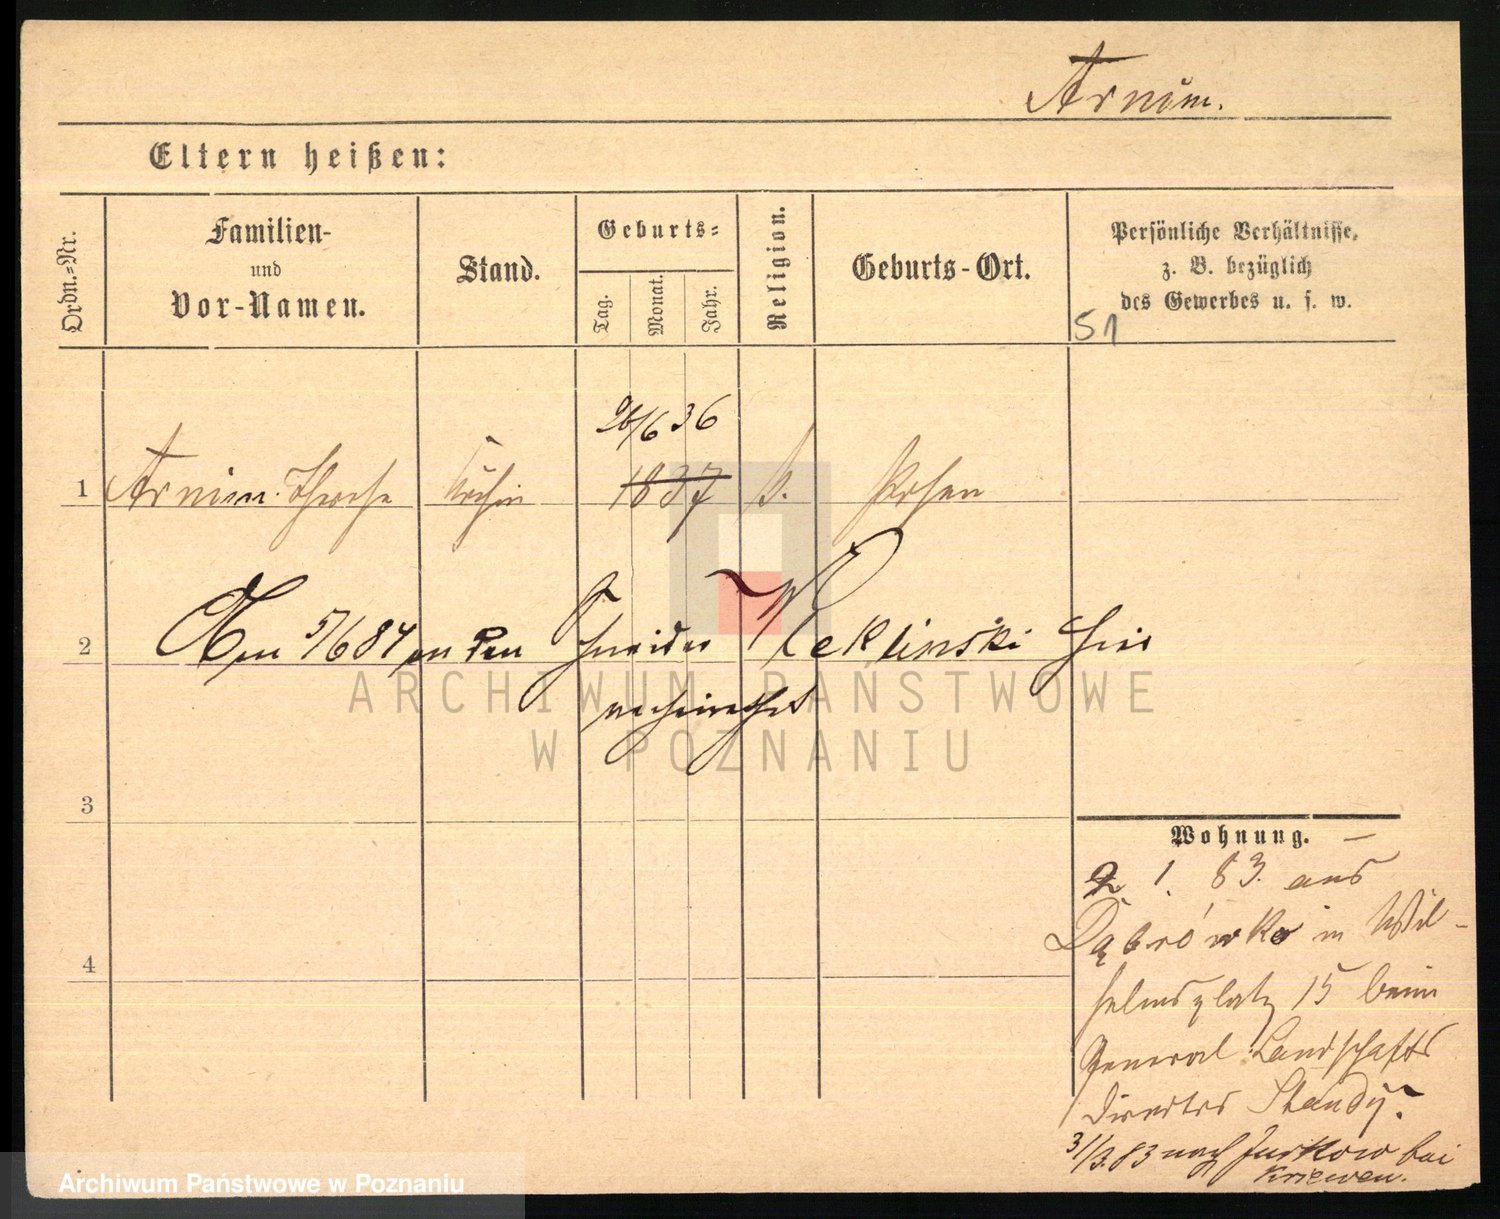 Arnim.
Eltern heißen:
Ordn.=Nr.
Familien-
und
Vor-Namen.
Stand.
Geburts=
Tag.
Monat.
Jahr.
Religion.
Geburts-Ort.
Persönliche Verhältnisse,
z. B. bezüglich
des Gewerbes u. s. w.
51
26/6 36
1 Arnim Therese Köchin 1837 k. Posen
2 Am 5/6 84 an den Schneider Reklinski hier
verheirathet
ARCHIWUM PAŃSTWOWE
W POZNANIU
3
Wohnung.
2 1. 83. aus
Dąbrówka in Wil-
helmsplatz 15 beim
General Landschafts
Director Standy.
31/3.83 nach Jurkowo bei
Kriewen.
4
Archiwum Państwowe w Poznaniu